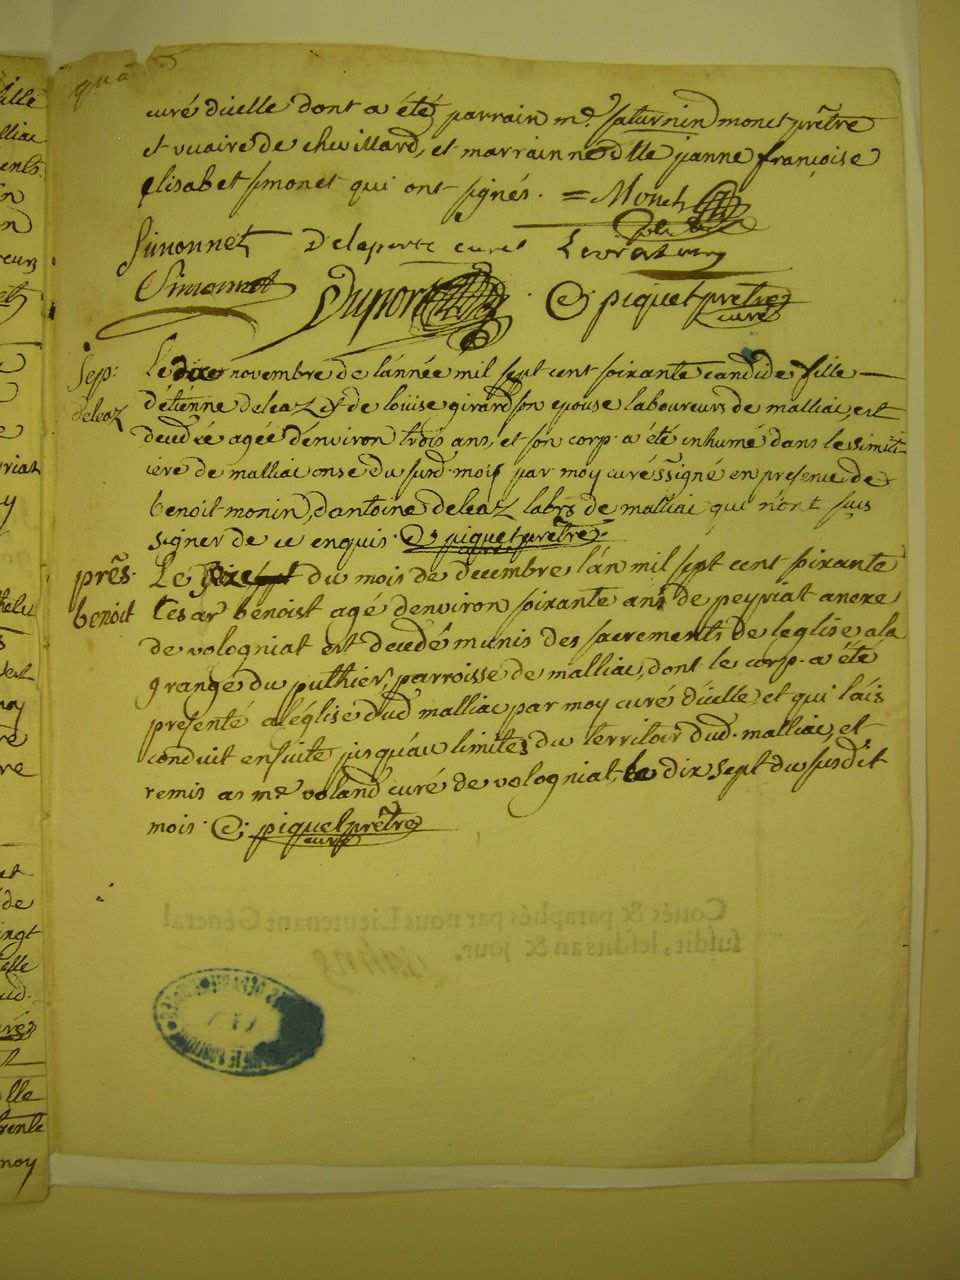 quà
curé d'icelle dont a été parrain mr. saturnin monet prêtre
et vicaire de chevillard, et marrainne dlle janne françoise
elisabet simonet qui ont signés. = Monet
Simonnet Delaporte curé
Simonnet Dupont C; piquet prêtre
curé
Sep:
deleaz
Le dix novembre de l'année mil sept cent soixante candide fille
d'étienne deleaz & de loüise girard son epouse laboureurs de malliac, est
decedée agée d'environ trois ans, et son corp. a été inhumé dans le simit-
iere de malliac onse du susd. mois par moy curé ssigné en presence de
benoit monin, d'antoine deleaz labrs de malliac qui n'ont sus
signer de ce enquis. C; piquet prêtre
prês.
benoit
Le seize du mois de decembre l'an mil sept cent soixante
Cesar benoist agé d'environ soixante ans de peyriat anexe
de volognat est decedé munis des sacrements de l'eglise a la
grange du puthier, parroisse de malliac, dont le corp. a été
presenté a l'église dud malliac par moy curé d'icelle et qui l'ais
conduit ensuite jusqu'au limites du territoir dud. malliac, et
remis a mr voland curé de volognat, le dix sept du susdit
mois. C; piquet prêtre
curé
Cottés & paraphés par nous Lieutenant Géneral
susdit, lesdits an & jour.